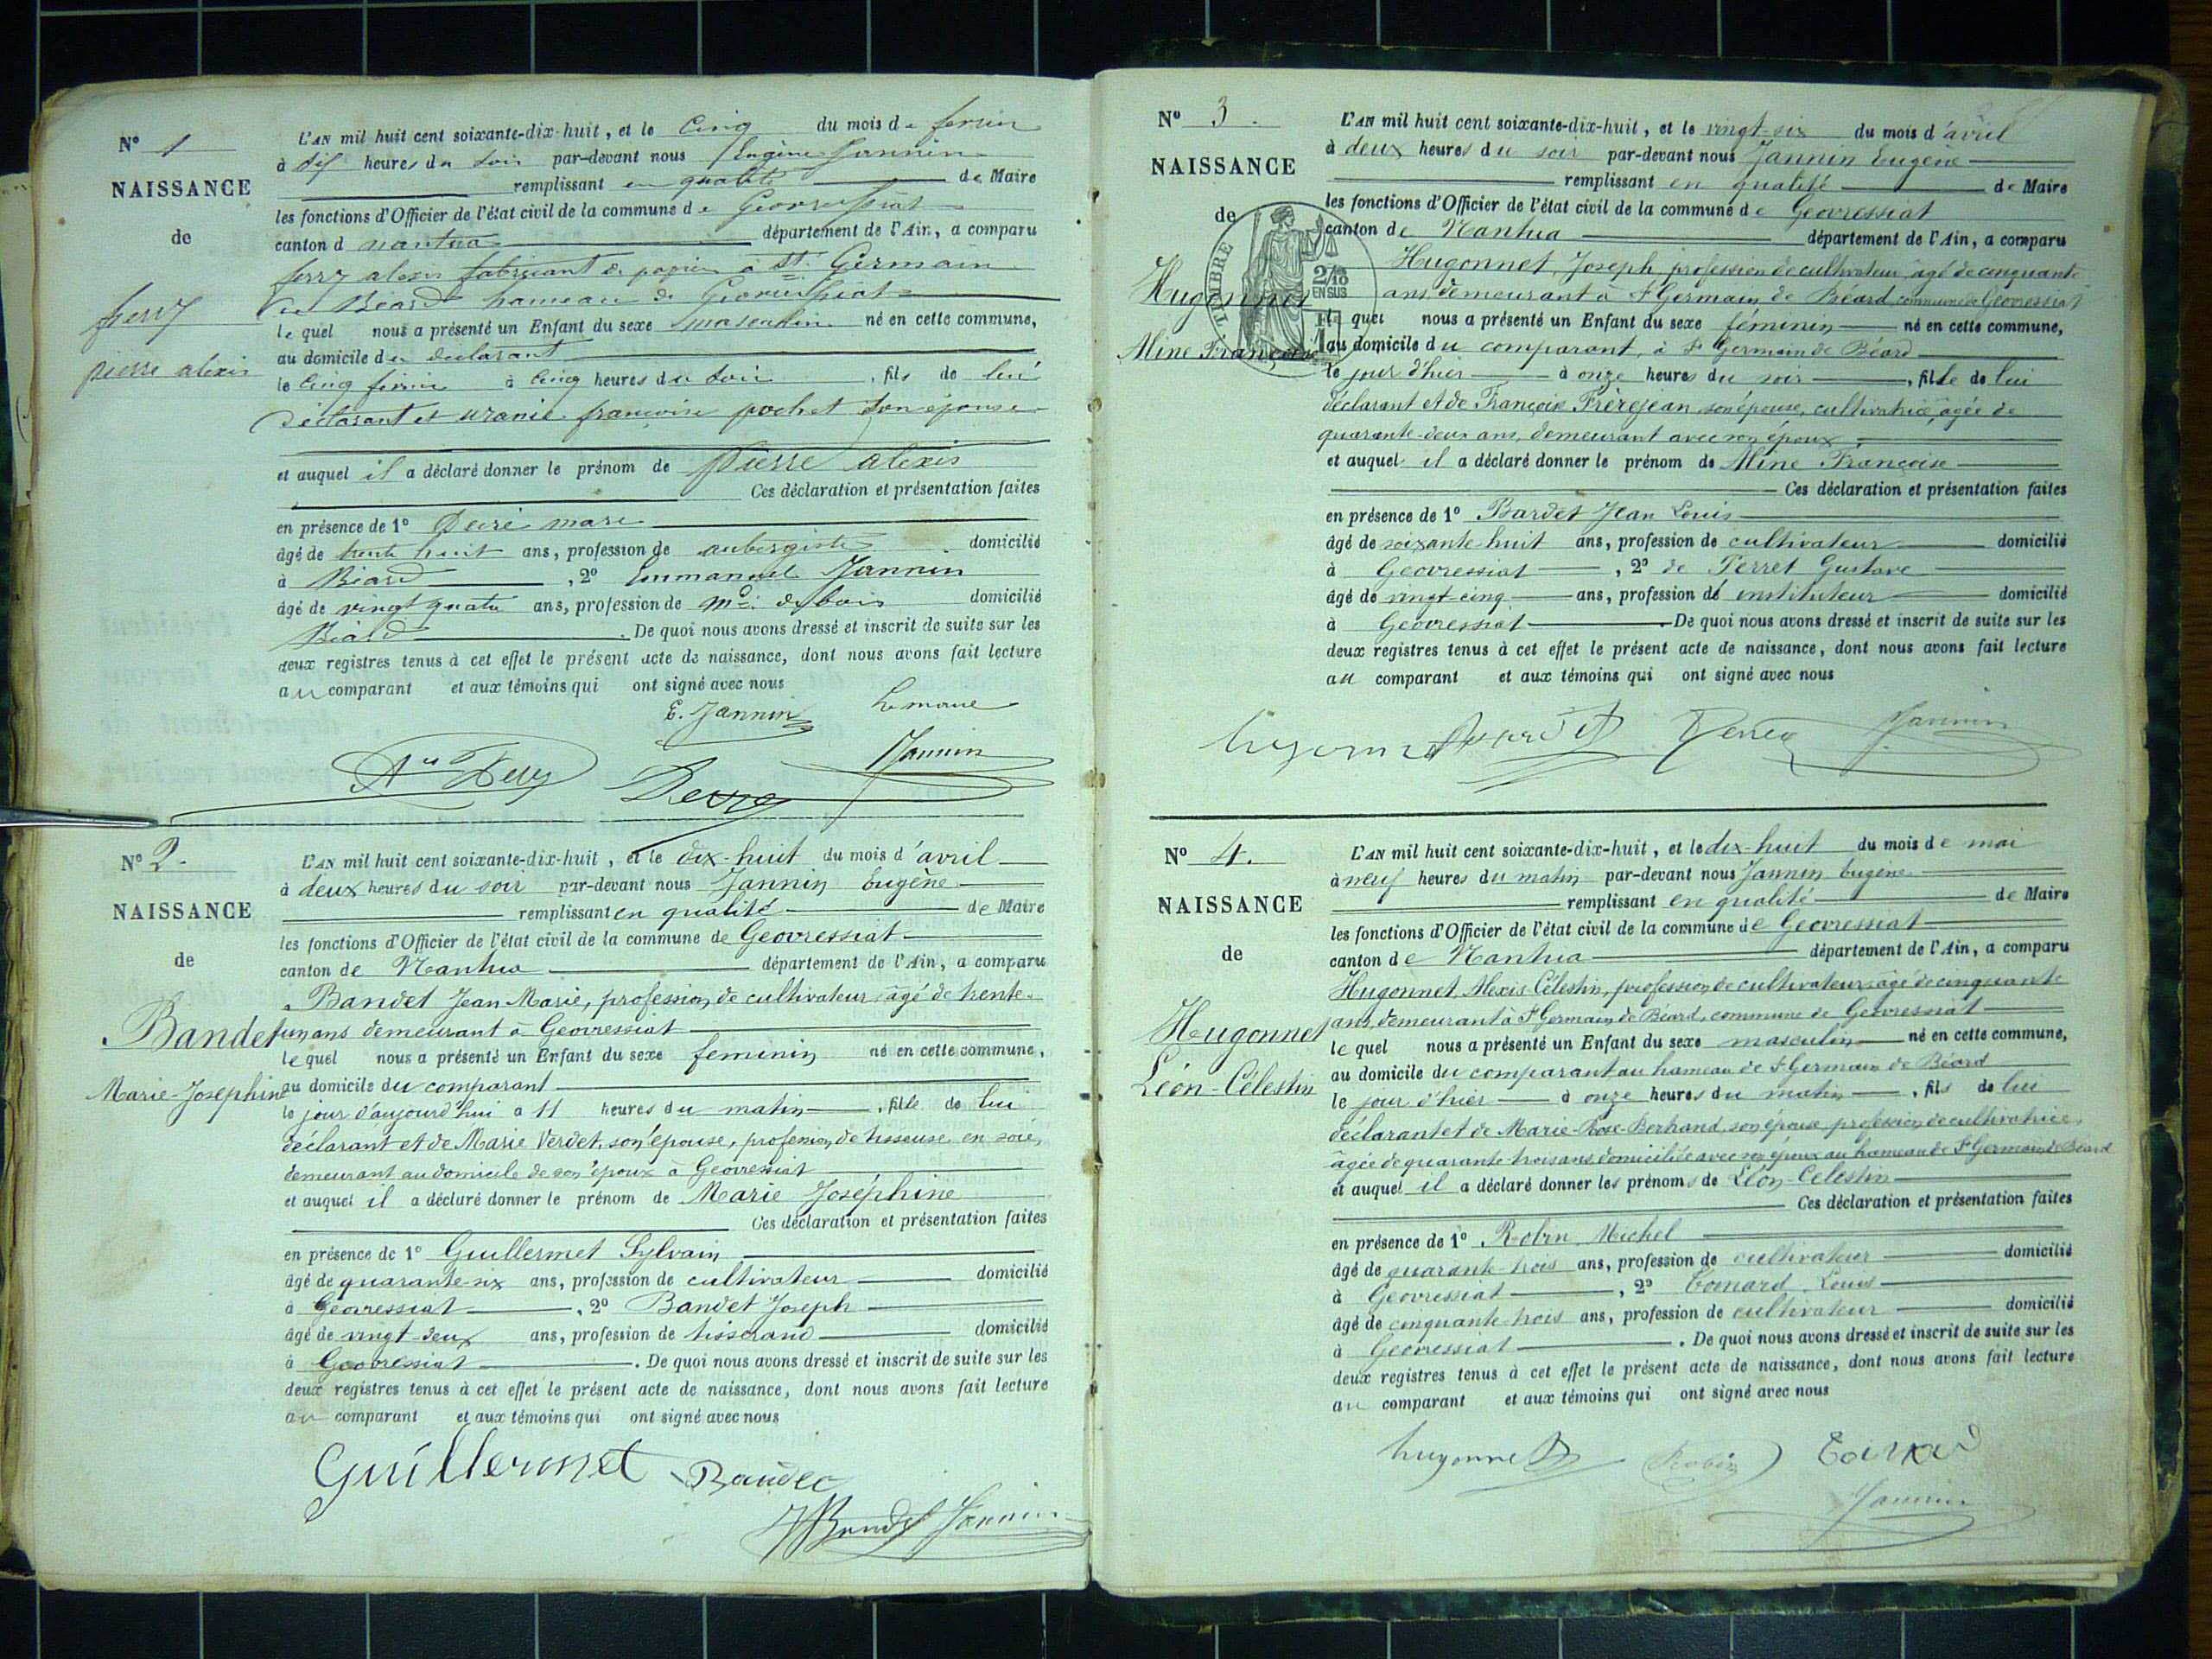 N° 1
NAISSANCE
de
ferry
pierre alexis
L'AN mil huit cent soixante-dix-huit, et le cinq du mois de fevrier
à dix heures du soir par-devant nous Eugène Jannin
remplissant en qualité de Maire
les fonctions d'Officier de l'état civil de la commune de Geovressiat
canton d nantua département de l'Ain, a comparu
ferry alexis fabricant de papier à St. Germain
de Béard hameau de Geovressiat
le quel nous a présenté un Enfant du sexe masculin né en cette commune,
au domicile du declarant
le cinq fevrier à cinq heures du soir, fils de lui
déclarant et uranie françoise pochet son épouse
et auquel il a déclaré donner le prénom de pierre alexis
Ces déclaration et présentation faites
en présence de 1°
âgé de trente huit ans, profession de aubergiste domicilié
à Béard, 2° Emmanuel Jannin
âgé de vingt quatre ans, profession de md. de bois domicilié
Béard. De quoi nous avons dressé et inscrit de suite sur les
deux registres tenus à cet effet le présent acte de naissance, dont nous avons fait lecture
au comparant et aux témoins qui ont signé avec nous
E. Jannin Le maire
Jannin
N° 2.
NAISSANCE
de
Bandet
Marie-Josephine
L'AN mil huit cent soixante-dix-huit, et le dix-huit du mois d'avril
à deux heures du soir par-devant nous Jannin Eugène
remplissant en qualité de Maire
les fonctions d'Officier de l'état civil de la commune de Geovressiat
canton de Nantua département de l'Ain, a comparu
Bandet Jean-Marie, profession de cultivateur âgé de trente-
un ans demeurant à Geovressiat
le quel nous a présenté un Enfant du sexe feminin né en cette commune,
au domicile du comparant
le jour d'aujourd'hui à 11 heures du matin, fille de lui
déclarant et de Marie Verdet, son épouse, profession de tisseuse en soie,
demeurant au domicile de son époux à Geovressiat
et auquel il a déclaré donner le prénom de Marie Joséphine
Ces déclaration et présentation faites
en présence de 1° Guillermet Sylvain
âgé de quarante-six ans, profession de cultivateur domicilié
à Geovressiat, 2° Bandet Joseph
âgé de vingt-deux ans, profession de tisserand domicilié
à Geovressiat. De quoi nous avons dressé et inscrit de suite sur les
deux registres tenus à cet effet le présent acte de naissance, dont nous avons fait lecture
au comparant et aux témoins qui ont signé avec nous
Guillermet Bandet
JBandet Jannin
N° 3.
NAISSANCE
de
Hugonnet
Aline Françoise
TIMBRE
2/10
EN SUS
L'AN mil huit cent soixante-dix-huit, et le vingt-six du mois d'avril
à deux heures du soir par-devant nous Jannin Eugène
remplissant en qualité de Maire
les fonctions d'Officier de l'état civil de la commune de Geovressiat
canton de Nantua département de l'Ain, a comparu
Hugonnet, Joseph, profession de cultivateur, âgé de cinquante
ans demeurant à St Germain de Béard commune de Geovressiat
le quel nous a présenté un Enfant du sexe féminin né en cette commune,
au domicile du comparant, à St Germain de Béard
le jour d'hier à onze heures du soir, fille de lui
déclarant et de Françoise Frèrejean, son épouse, cultivatrice, agée de
quarante-deux ans, demeurant avec son époux
et auquel il a déclaré donner le prénom de Aline Françoise
Ces déclaration et présentation faites
en présence de 1° Bardet Jean Louis
âgé de soixante-huit ans, profession de cultivateur domicilié
à Geovressiat, 2° de Perret Gustave
âgé de vingt-cinq ans, profession de instituteur domicilié
à Geovressiat. De quoi nous avons dressé et inscrit de suite sur les
deux registres tenus à cet effet le présent acte de naissance, dont nous avons fait lecture
au comparant et aux témoins qui ont signé avec nous
Jannin
N° 4.
NAISSANCE
de
Hugonnet
Léon-Célestin
L'AN mil huit cent soixante-dix-huit, et le dix-huit du mois de mai
à neuf heures du matin par-devant nous Jannin Eugène
remplissant en qualité de Maire
les fonctions d'Officier de l'état civil de la commune de Geovressiat
canton de Nantua département de l'Ain, a comparu
Hugonnet, Alexis Célestin, profession de cultivateur, âgé de cinquante
ans, demeurant à St Germain de Béard, commune de Geovressiat
le quel nous a présenté un Enfant du sexe masculin né en cette commune,
au domicile du comparant au hameau de St Germain de Béard
le jour d'hier à onze heures du matin, fils de lui
déclarant et de Marie-Rose Berthand, son épouse profession de cultivatrice,
âgée de quarante-trois ans domiciliée avec son époux au hameau de St Germain de Béard
et auquel il a déclaré donner les prénoms de Léon-Celestin
Ces déclaration et présentation faites
en présence de 1° Robin Michel
âgé de quarante-trois ans, profession de cultivateur domicilié
à Geovressiat, 2° Louis
âgé de cinquante-trois ans, profession de cultivateur domicilié
à Geovressiat. De quoi nous avons dressé et inscrit de suite sur les
deux registres tenus à cet effet le présent acte de naissance, dont nous avons fait lecture
au comparant et aux témoins qui ont signé avec nous
hugonnet Robin
Jannin